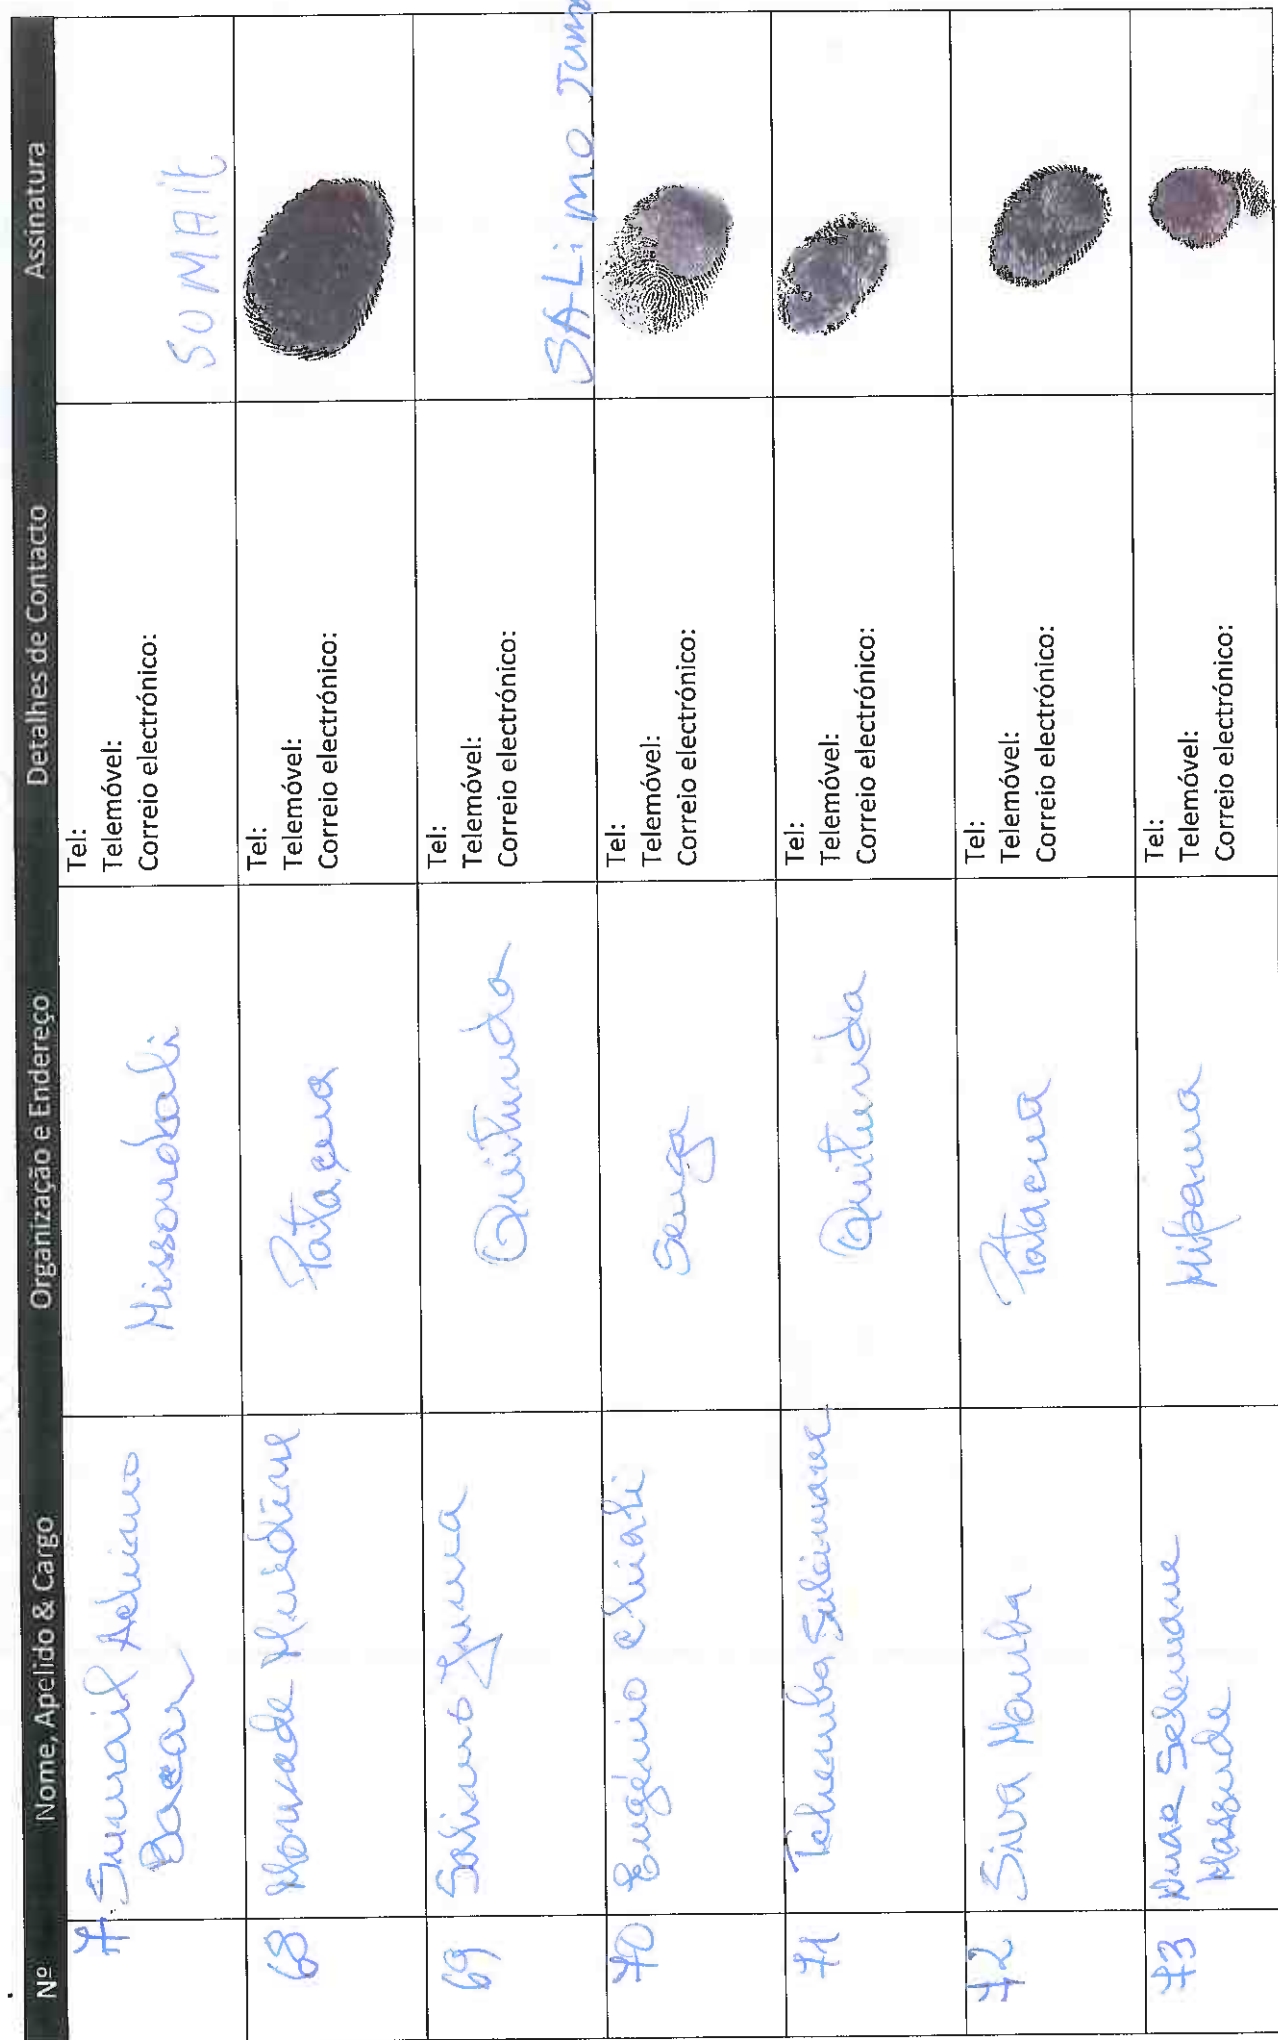 Nº Nome, Apelido & Cargo Organização e Endereço Detalhes de Contacto Assinatura
Sumail Achimo
Bacar
Missondali
Tel:
Telemóvel:
Correio electrónico:
SUMAIL
68 Momade Muidine
Patacua
Tel:
Telemóvel:
Correio electrónico:
69 Salimo Juma
Quitunda
Tel:
Telemóvel:
Correio electrónico:
SALimo Juma
70 Eugénio Chiali
Senga
Tel:
Telemóvel:
Correio electrónico:
71 Tchemba Sulemane
Quitunda
Tel:
Telemóvel:
Correio electrónico:
72 Siva Momba
Patacua
Tel:
Telemóvel:
Correio electrónico:
73 Selemane
Massude
Tel:
Telemóvel:
Correio electrónico: